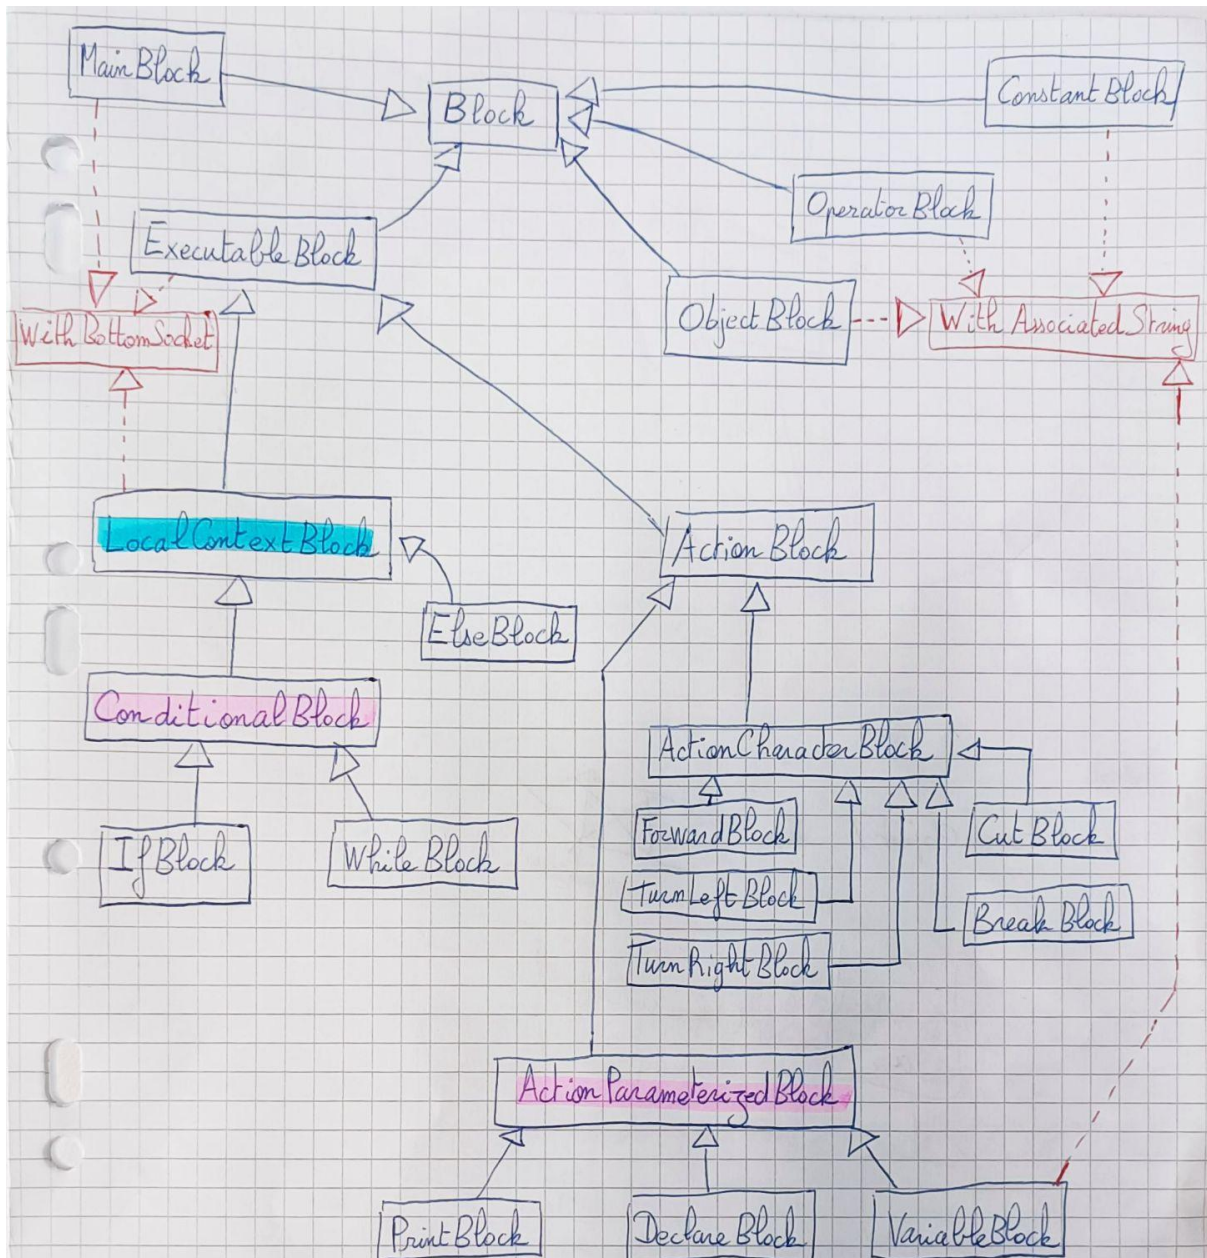 MainBlock
Block
ConstantBlock
OperatorBlock
ExecutableBlock
ObjectBlock
WithAssociatedString
WithBottomSocket
LocalContextBlock
ActionBlock
ElseBlock
ConditionalBlock
ActionCharacterBlock
ForwardBlock
CutBlock
IfBlock
WhileBlock
TurnLeftBlock
BreakBlock
TurnRightBlock
ActionParameterizedBlock
PrintBlock
DeclareBlock
VariableBlock